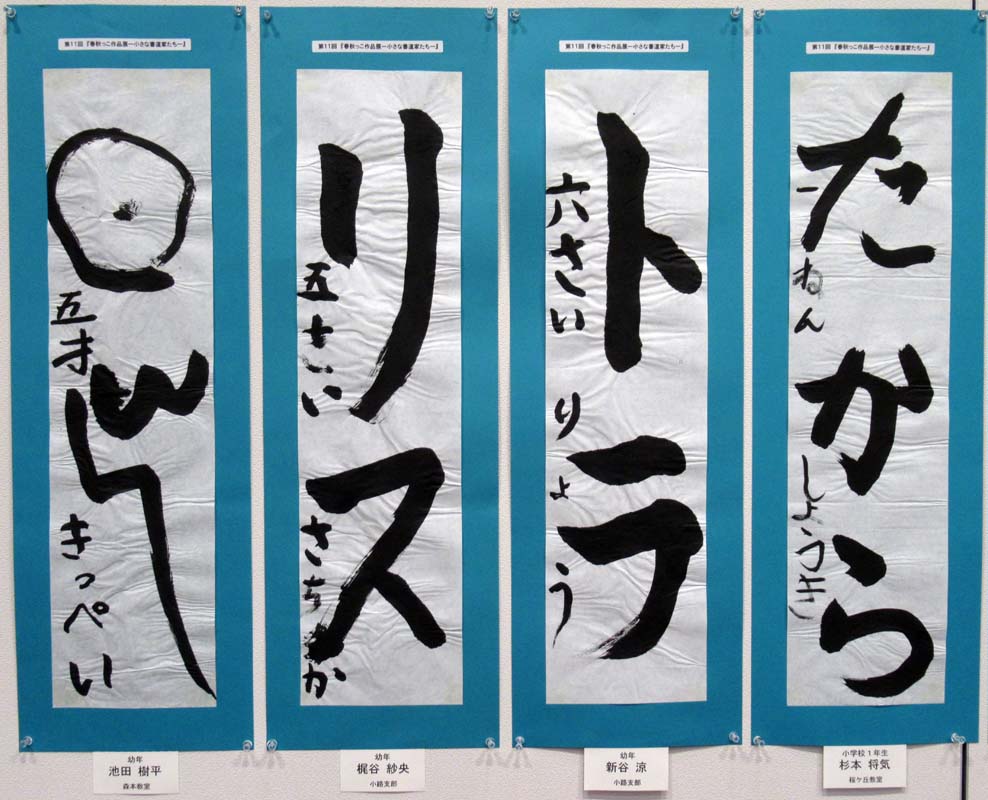 第11回『春秋っこ作品展ー小さな書道家たちー』
五才 きっぺい
幼年
池田 樹平
森本教室
第11回『春秋っこ作品展ー小さな書道家たちー』
リス
五さい さちか
幼年
梶谷 紗央
小路支部
第11回『春秋っこ作品展ー小さな書道家たちー』
トラ
六さい りょう
幼年
新谷 涼
小路支部
第11回『春秋っこ作品展ー小さな書道家たちー』
たから
一ねん しょうき
小学校1年生
杉本 将気
桜ケ丘教室